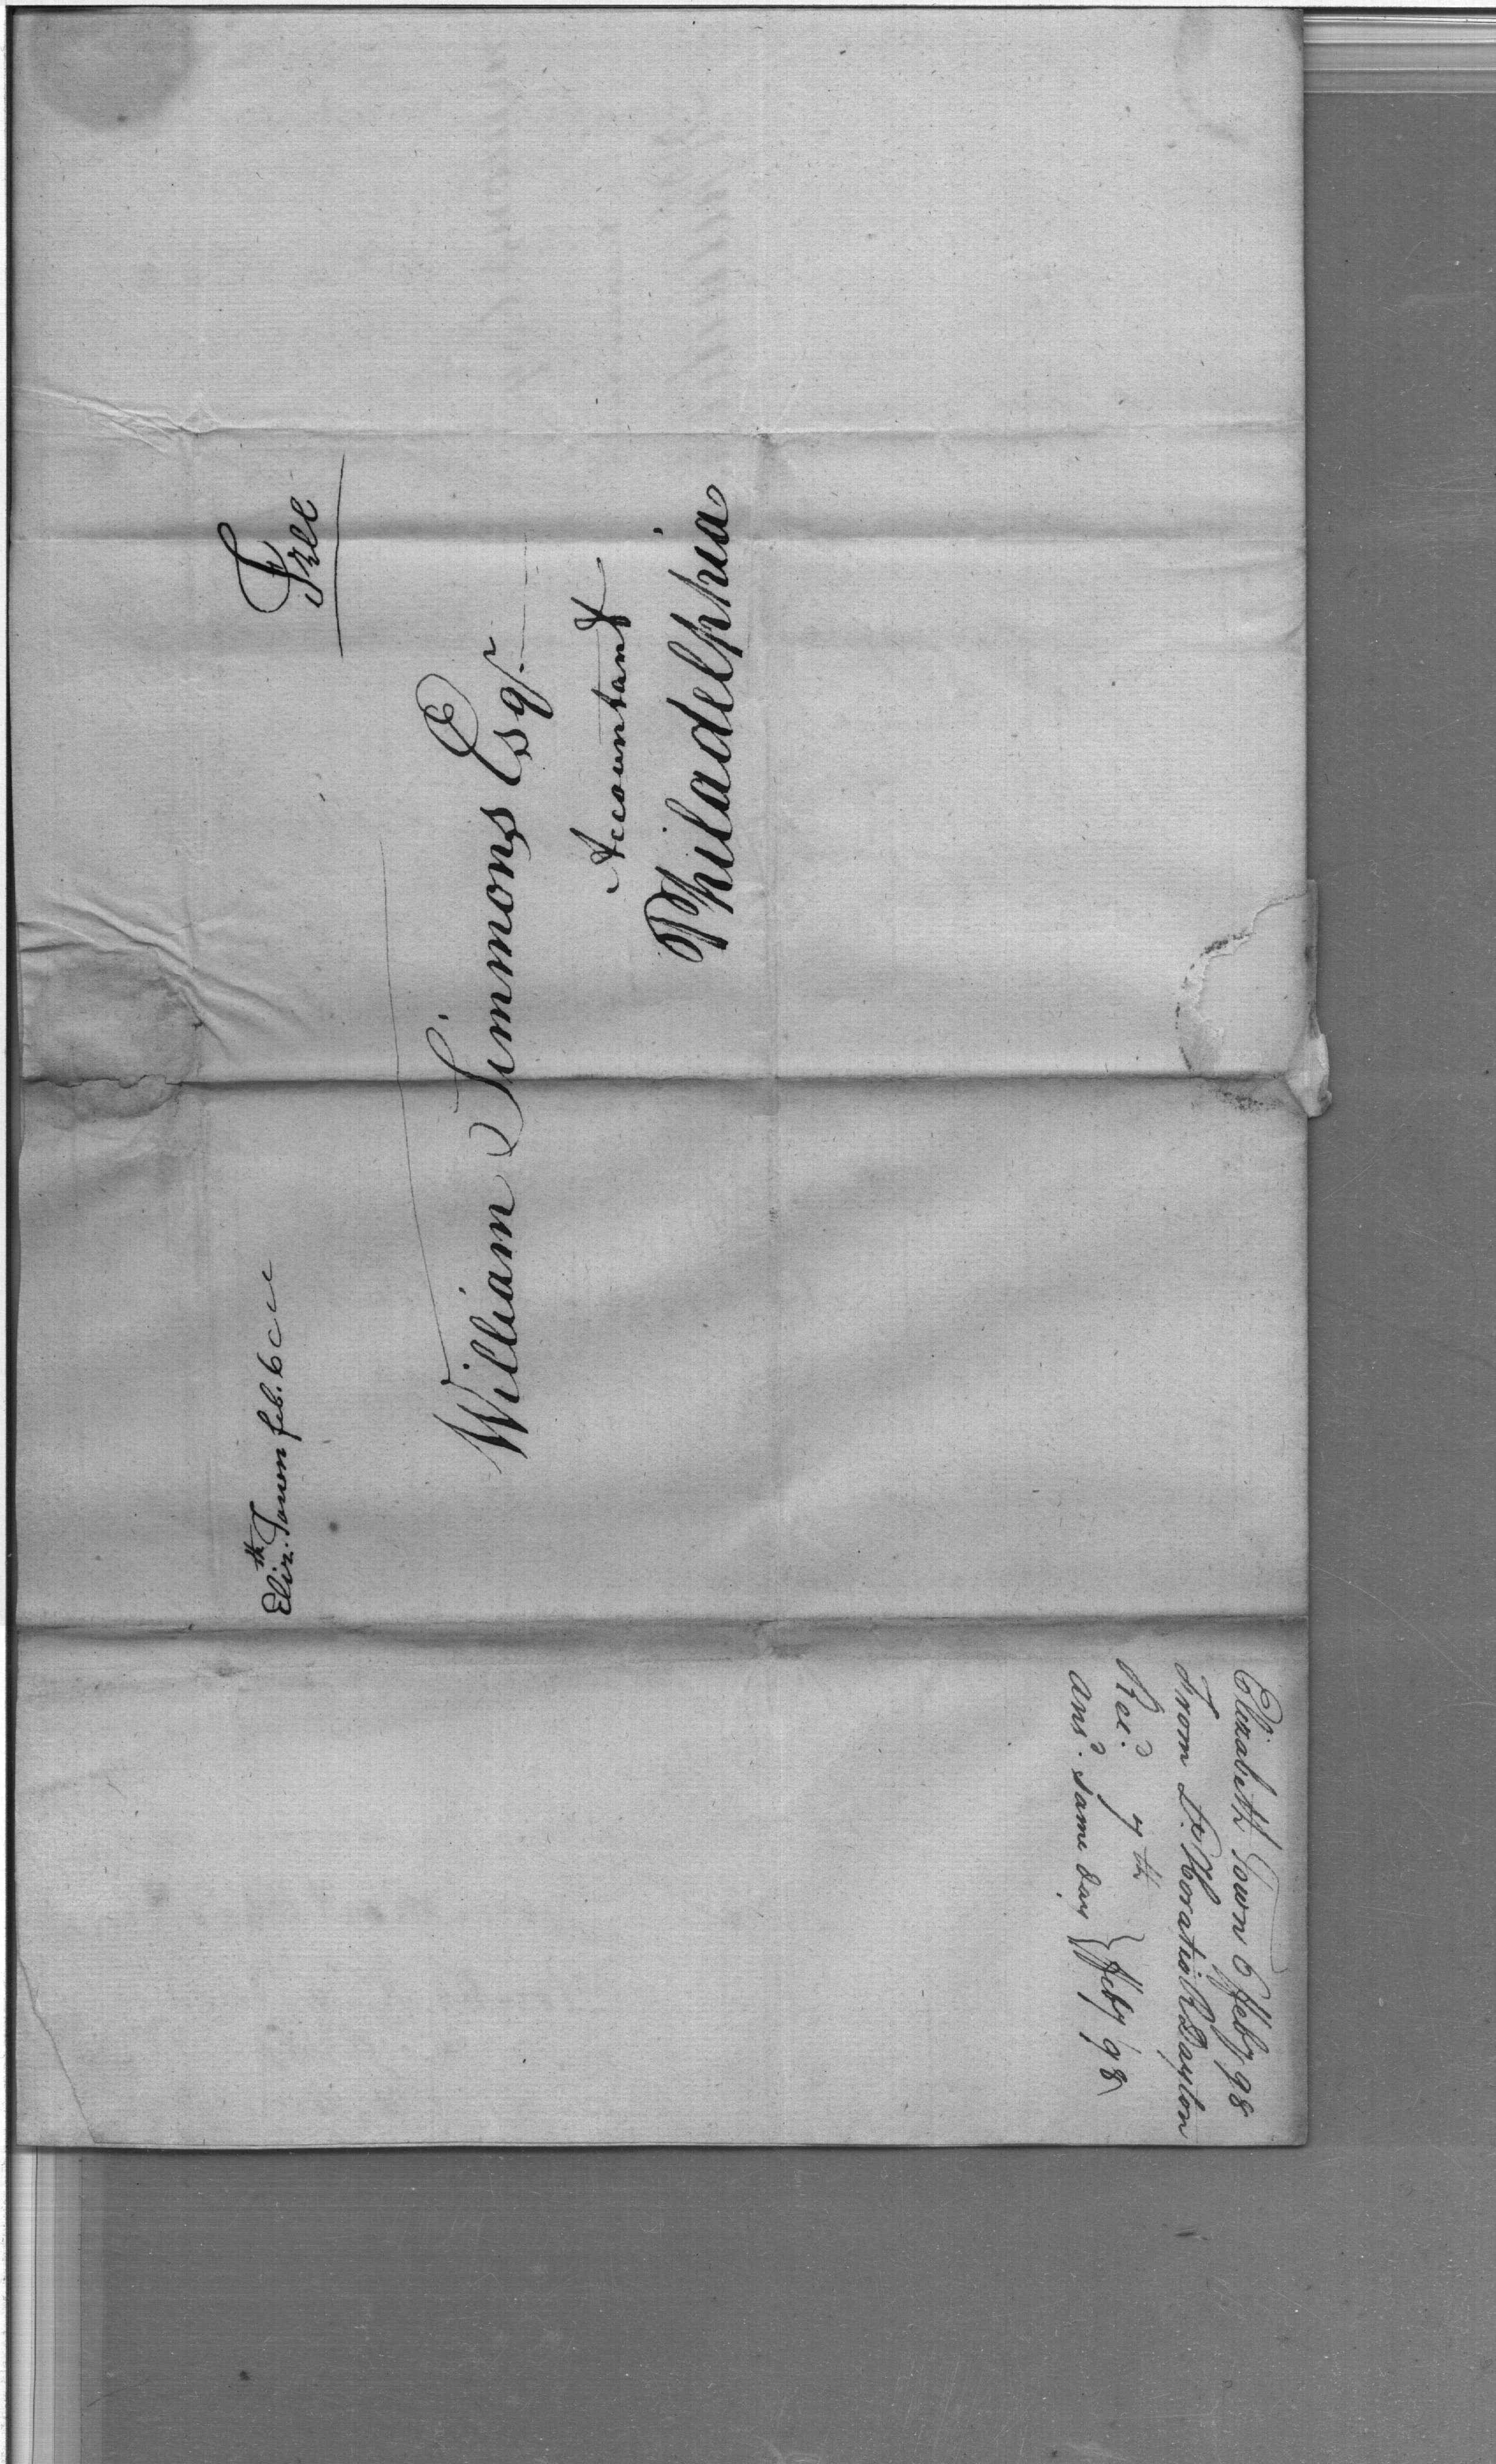 Eliz.th Town feb. 6
Free
William Simmons Esqr.
Accountant
Philadelphia
Elizabeth Town 6 Feby 98
From Lt. Horatio R Dayton
Rec.d 7th } Feby 98
ans.d same day }